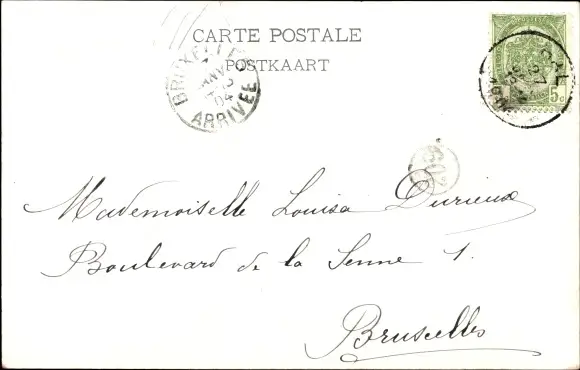 CARTE POSTALE
POSTKAART
BRUXELLES
JANV
04
ARRIVÉE
5c
Mademoiselle Louisa Durieux
Boulevard de la Senne 1.
Bruxelles